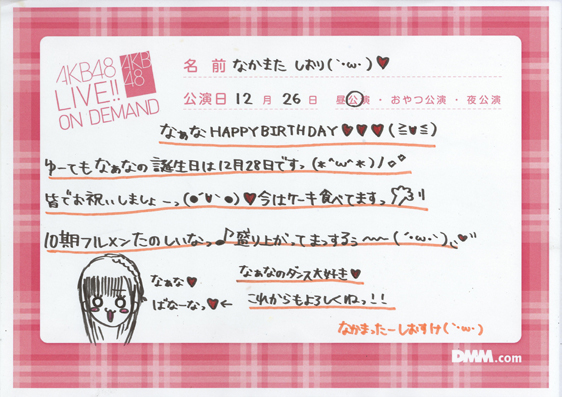 AKB48
LIVE!!
ON DEMAND
AKB
48
名 前 なかまた しおり(´・ω・)♥
公演日 12 月 26 日 昼公演・おやつ公演・夜公演
なぁなHAPPYBIRTHDAY♥♥♥(≧∀≦)
ゆーてもなぁなの誕生日は12月28日ですっ(*^ω^*)ノ
皆でお祝いしましょーっ(●´∀`●)♥今はケーキ食べてますっ
10期フルメンたのしいなっ♪盛り上がってまっするぅ〜〜(´・ω・`)
なぁな♥
ばなーなっ♥←
なぁなのダンス大好き♥
これからもよろしくねっ!!
なかまったーしおすけ(´・ω・)
DMM.com